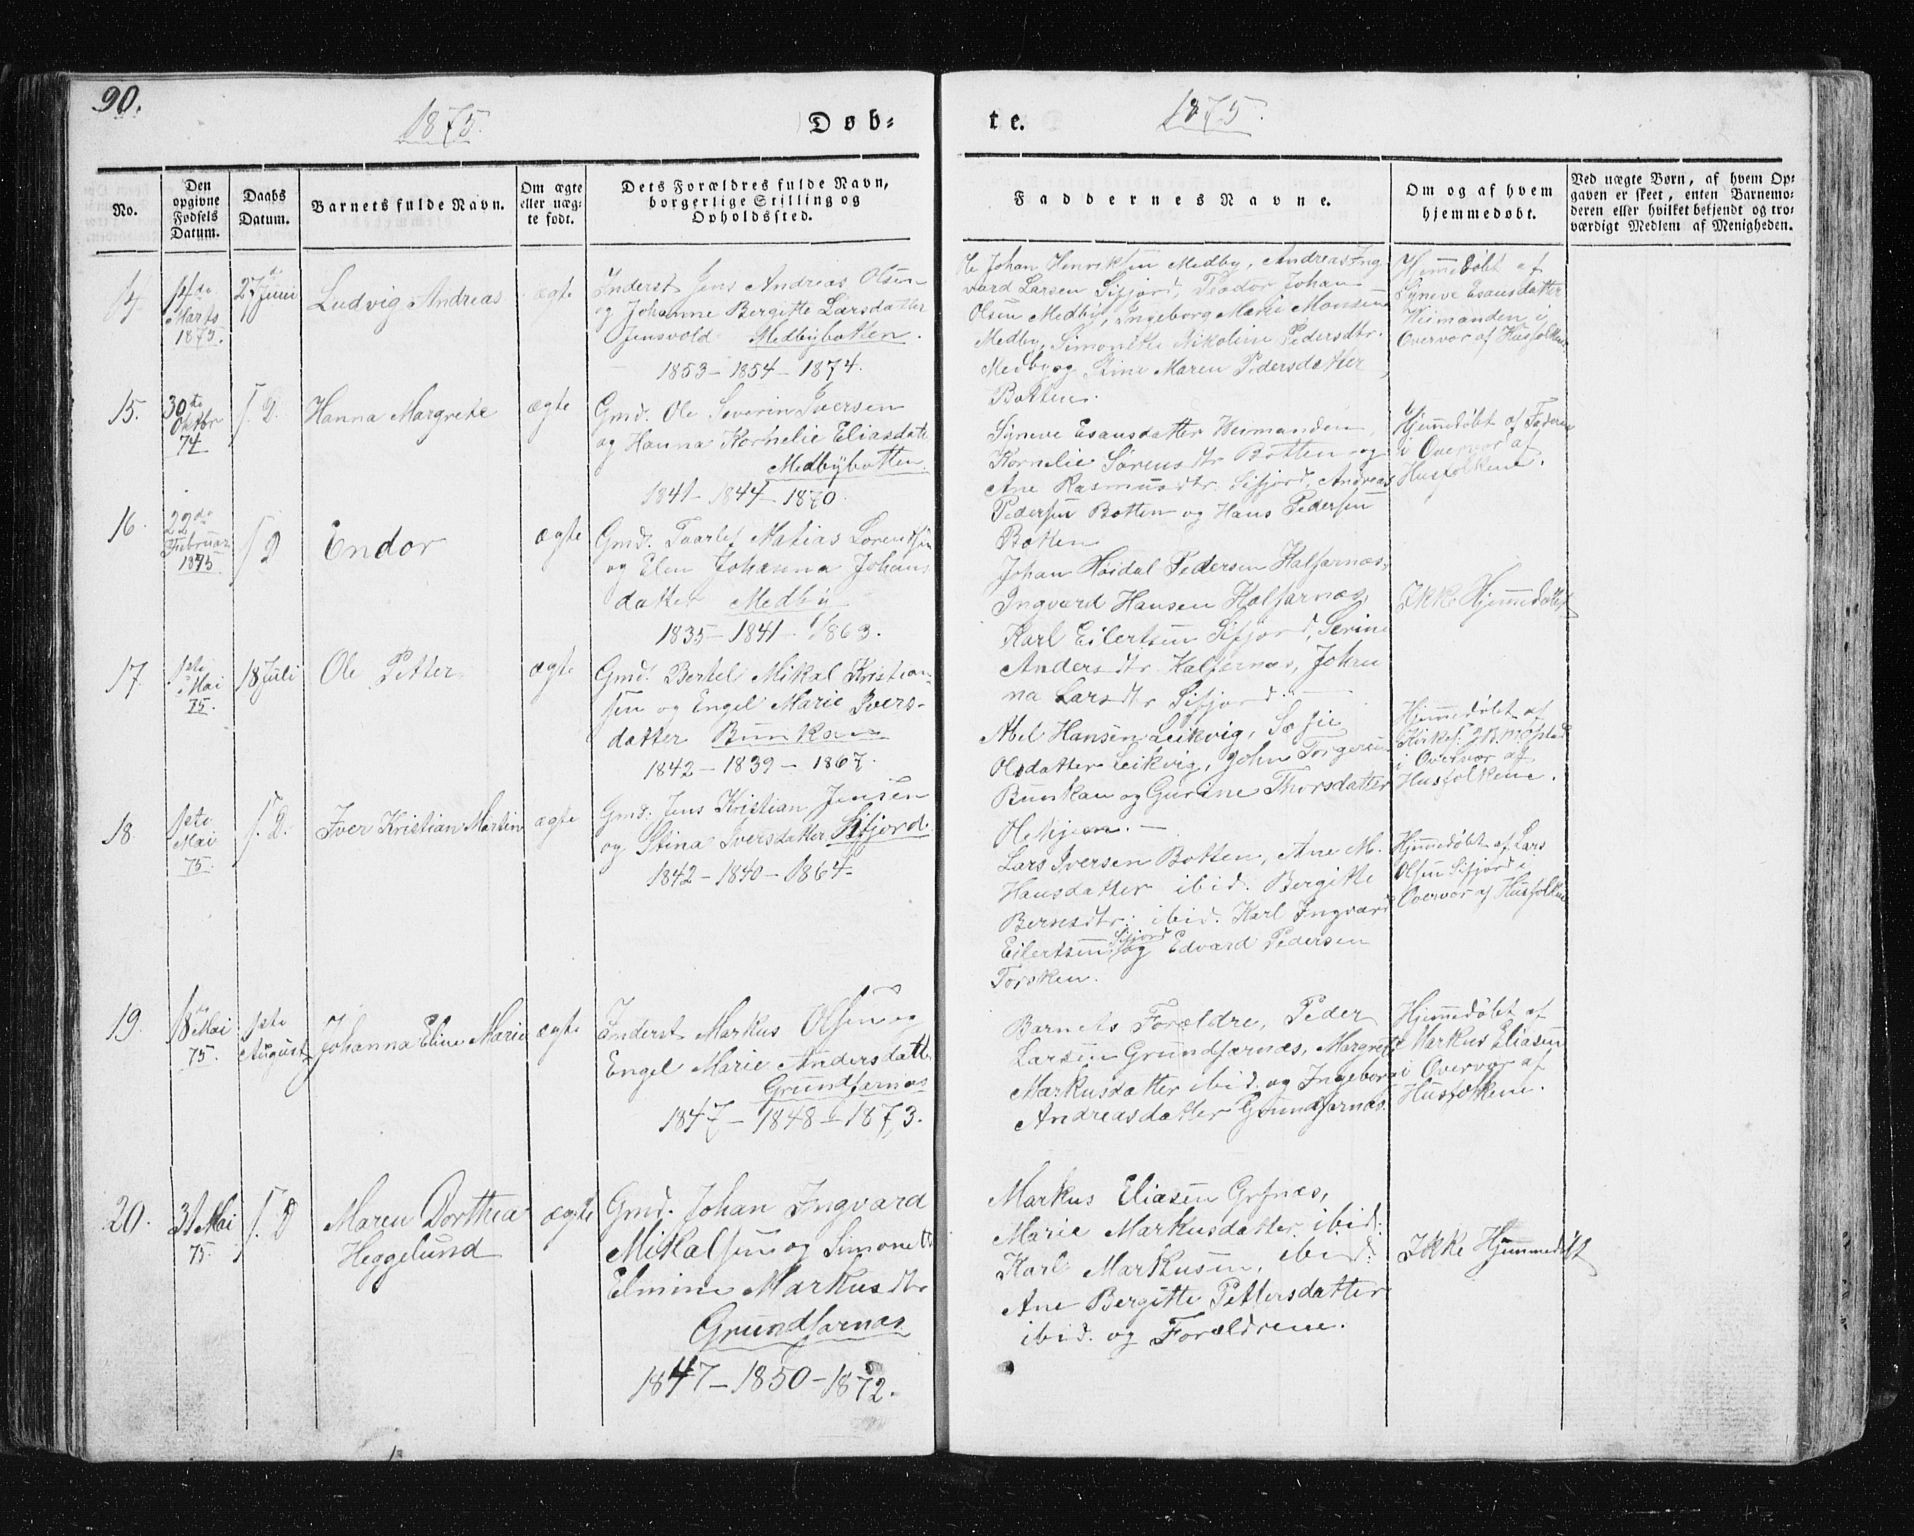 90.
1875.
Døb-
te.
1875.
No.
Den opgivne Fødsels Datum.
Daabs Datum.
Barnets fulde Navn.
Om ægte eller uægte født.
Dets Forældres fulde Navn, borgerlige Stilling og Opholdssted.
Faddernes Navne.
Om og af hvem hjemmedøbt.
Ved uægte Børn, af hvem Opgaven er skeet, enten Barnemoderen eller hvilket bekjendt og troværdigt Medlem af Menigheden.
14.
14de
Marts
1875.
27 Juni
Ludvig Andreas
ægte
Inderst Jens Andreas Olsen
og Johanne Bergitte Larsdatter
Medbybotten.
1853 - 1854 - 1874.
Johan Henriksen Medby, Andreas Ing
vard Larsen Sifjord, Teodor Johan
Olsen Medby, Ingeborg Marie Monsen
Medby, Simonette Nikoline Pedersdtr.
Medby og Stine Maren Pedersdatter
Botten.
Hjemmedøbt af
Syneve Esausdatter
i
Overvær af Husfolkene
15.
30te
Oktbr
74
s. D.
Hanna Margrete
ægte
Gmd. Ole Severin Iversen
og Hanna Kornelie Eliasdatt
Medbybotten.
1841 - 1844 - 1870.
Syneve Esausdatter
Kornelie Sørensdtr Botten og
Ane Rasmusdtr. Sifjord, Andreas
Pedersen Botten og Hans Pedersen
Botten
Hjemmedøbt af Faderen
i Overvær af
Husfolkene.
16.
22de
Februar
1875
s. D
Endor
ægte
Gmd. Taarlef Matias Lorentsen
og Elen Johanna Johans
datter Medby
1835 - 1841 - 1863.
Johan Høidal Pedersen Kalfarnæs,
Ingvard Hansen Kalfarnæs,
Karl Eilertsen Sifjord, Serine
Andersdtr Kalfarnæs, Johan
na Larsdtr Sifjord.
Ikke Hjemmedøbt
17.
1ste
Mai
75.
18 Juli
Ole Petter
ægte
Gmd. Bertel Mikal Kristian-
sen og Engel Marie Ivers-
datter Bunkan
1842 - 1839 - 1867.
Abel Hansen Leikvig, Sofie
Olsdatter Leikvig, John Torgersen
Bunkan og Gurine Thorsdatter
Olehjem. -
Hjemmedøbt af
Kirkes.
i Overvær af
Husfolkene.
18
1ste
Mai
75.
s. D.
Iver Kristian Martin
ægte
Gmd. Jens Kristian Jensen
og Stina Iversdatter Sifjord.
1842 - 1840 - 1864
Lars Iversen Botten, Ane M.
Hansdatter ibid. Bergitte
Berntsdtr. ibid. Karl Ingvard
Eilertsen Sifjord og Edvard Pedersen
Torsken.
Hjemmedøbt af Lars
Olsen Sifjord i
Overvær af Husfolkene
19.
18 Mai
75.
1ste
August
Johanna Eline Marie
ægte
Inderst Markus Olsen og
Engel Marie Andersdatt.
Grundfarnæs
1847 - 1848 - 1873.
Barnets Forældre, Peder
Larsen Grundfarnæs, Margrete
Markusdatter ibid. og Ingeborg
Andreasdatter Grundfarnæs.
Hjemmedøbt af
Markus Eliasen
i Overvær af
Husfolkene.
20.
31 Mai
75.
s. D
Maren Dorthea
Heggelund
ægte
Gmd. Johan Ingvard
Mikalsen og Simonette
Elmine Markusdtr
Grundfarnæs
1847 - 1850 - 1872.
Markus Eliasen Grfnæs,
Marie Markusdatter ibid:
Karl Markusen, ibid:
Ane Bergitte Pettersdatter
ibid. og Forældrene.
Ikke Hjemmedøbt